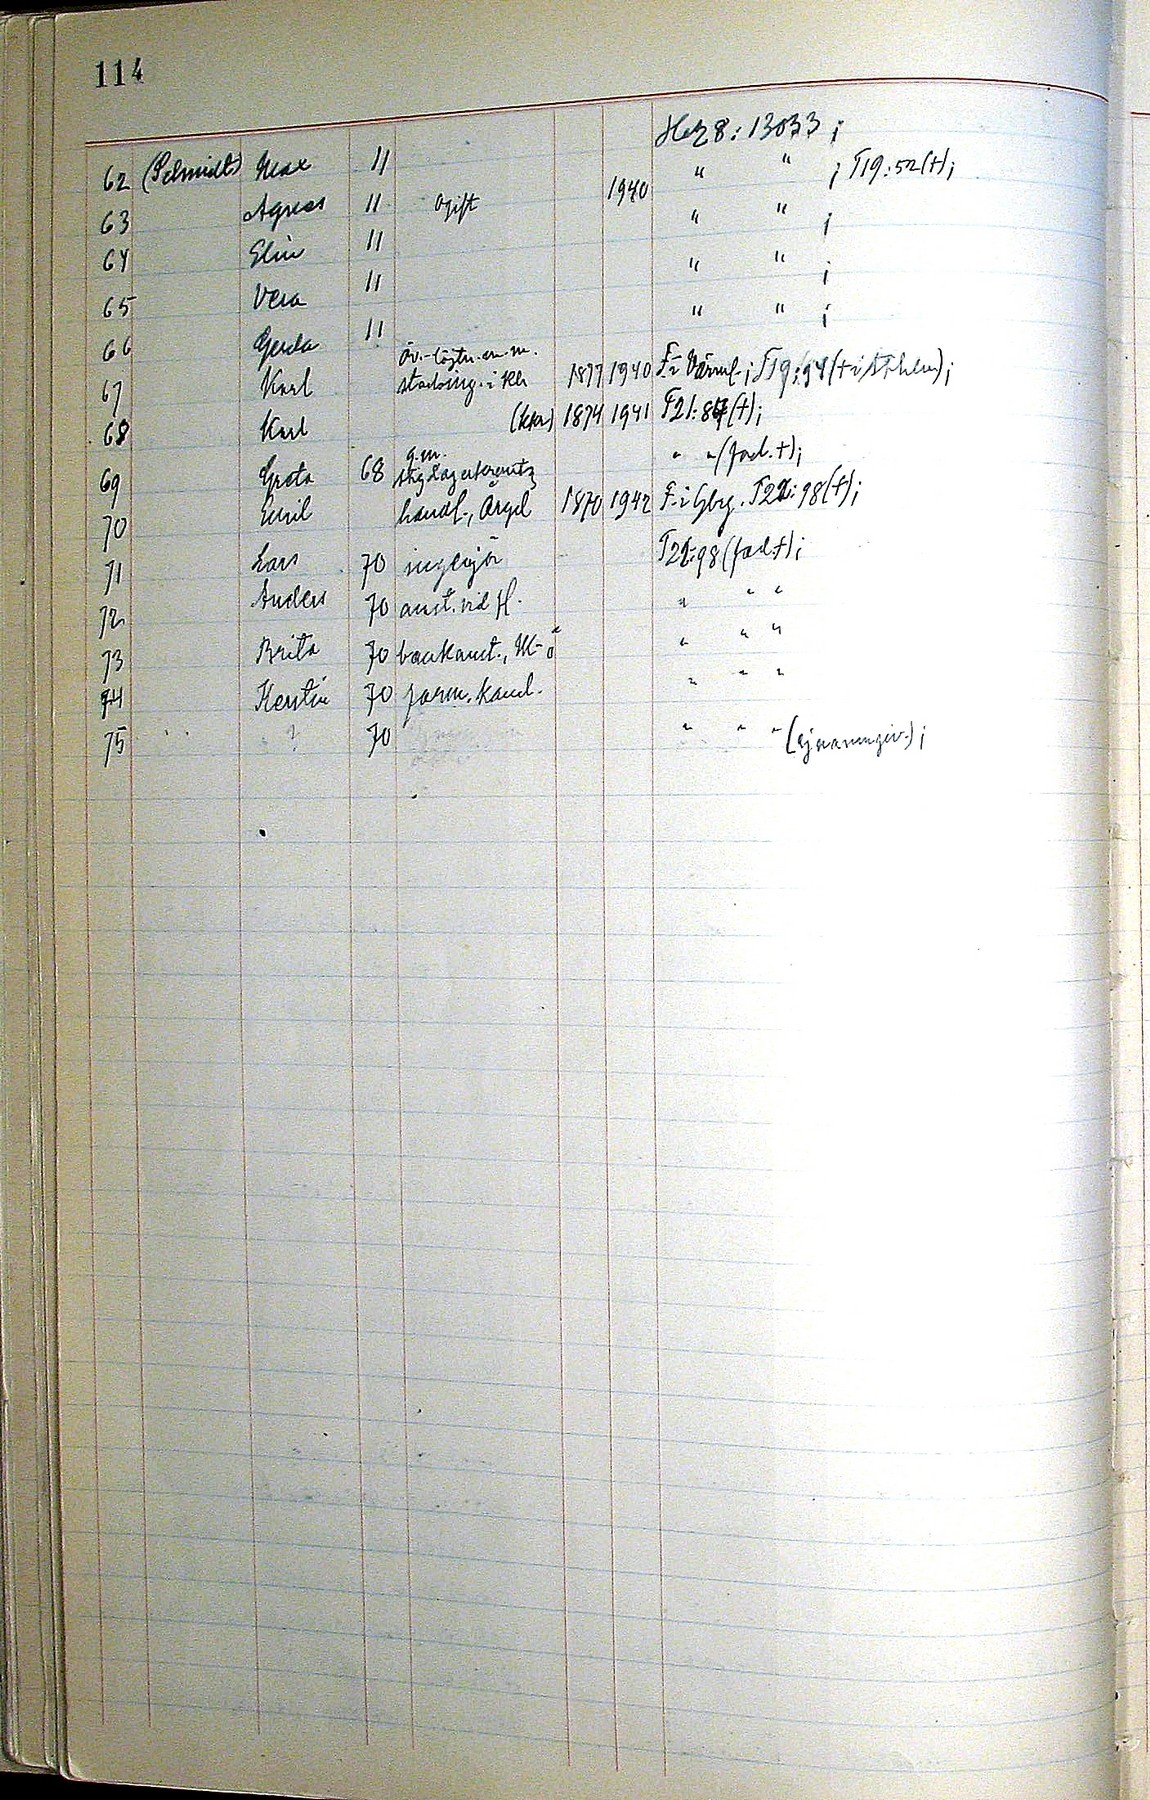 114
62 (Schmidt) Max 11 Hch 8: 13033 ;
63 Agnes 11 ogift 1940 " " ; T19:52(†);
64 Elin 11 " " ;
65 Vera 11 " " ;
66 Gerda 11 " " ;
67 Karl öv.-löjtn. 1877 1940 F. i Värml.; T19:94(† i Sthlm);
68 Karl (kkr) 1874 1941 T21:84(†);
69 Greta 68 g.m. Stig Lagercrantz " " (fad. †);
70 Emil handl., Årgel 1870 1942 F. i Gbg. T22:98(†);
71 Lars 70 ingenjör T22:98 (fad †);
72 Anders 70 anst. vid H. " " "
73 Brita 70 bankanst., M-ö " " "
74 Kerstin 70 farm. kand. " " "
75 " ? 70 " " " (ej namngiv.);